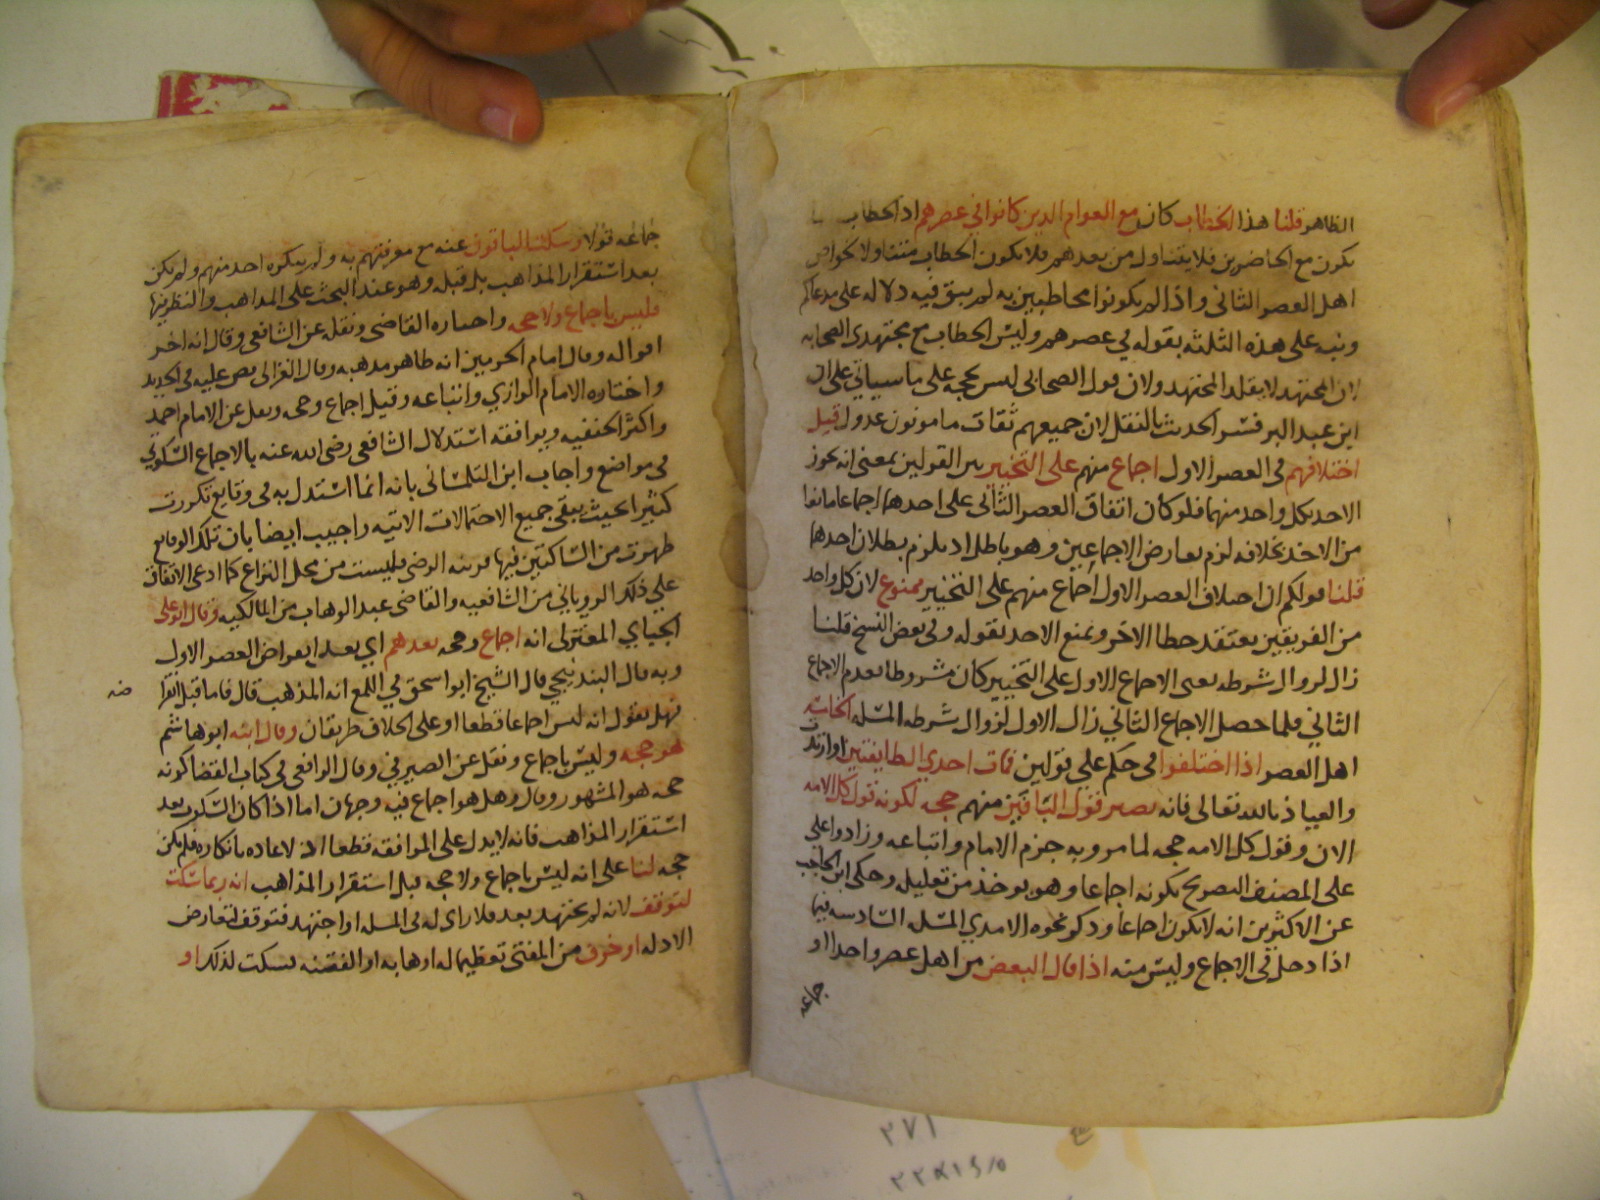 الظاهر قلنا هذا الخطاب كان مع العوام الدين كانوا في عصرهم اد الخطاب
يكون مع الحاضرين فلا يتناول من بعدهم فلا يكون الخطاب متناولا لخواص
اهل العصر الثاني واذا لم يكونوا مخاطبين به لم يبق فيه دلاله على مدعاكم
ونبه على هذه الثلثه بقوله في عصرهم وليس الخطاب مع مجتهدي الصحابه
لان المجتهد لا يقلد المجتهد ولان قول الصحابي ليس بحجه على ما سياتي على ان
ابن عبد البر فسر الحديث بالنقل لان جميعهم ثقات مامونون عدول قيل
اختلافهم في العصر الاول اجماع منهم على التخيير بين القولين بمعنى انه يجوز
الاحد بكل واحد منهما فلو كان اتفاق العصر الثاني على احدهما اجماعا مانعا
من الاخد بخلافه لزم تعارض الاجماعين وهو باطل اد يلزم بطلان احدهما
قلنا قولكم ان اختلاف العصر الاول اجماع منهم على التخيير ممنوع لان كل واحد
من الفريقين يعتقد خطا الاخر ويمنع الاحد بقوله وفي بعض النسخ قلنا
زال لزوال شرطه يعنى الاجماع الاول على التخيير كان مشروطا بعدم الاجماع
الثاني فلما حصل الاجماع الثاني زال الاول لزوال شرطه المسله الخامسه
اهل العصر اذا اختلفوا في حكم على قولين فمات احدي الطايفتين او ارتد
والعياذ بالله تعالى فانه يصير قول الباقين منهم حجه لكونه قول كل الامه
الان وقول كل الامه حجه لما مر وبه جزم الامام واتباعه وزادوا على
على المصنف التصريح بكونه اجماعا وهو يوخذ من تعليله وحكى ابن الحاجب
عن الاكثرين انه لا يكون اجماعا ودكر نحوه الامدي المسله السادسه فيما
اذا دخل في الاجماع وليس منه اذا قال البعض من اهل عصر واحدا او
جماعه
جماعه قولا وسكت الباقون عنه مع معرفتهم به ولم ينكره احد منهم ولم يكن
بعد استقرار المذاهب بل قبله وهو عند البحث على المذاهب والنظر فيها
فليس باجماع ولا حجه واختاره القاضي ونقله عن الشافعي وقال انه اخر
اقواله وقال امام الحرمين انه ظاهر مذهبه وقال الغزالى نص عليه في الجديد
واختاره الامام الرازي واتباعه وقيل اجماع وحجه ونقل عن الامام احمد
واكثر الحنفيه ويوافقه استدلال الشافعي رضي الله عنه بالاجماع السكوتي
في مواضع واجاب ابن التلمساني بانه انما استدل به في وقايع تكررت
كثيرا بحيث يبقى جميع الاحتمالات الاتيه واجيب ايضا بان تلك الوقايع
ظهرت من الساكتين فيها قرينه الرضى فليست من محل النزاع كما ادعى الاتفاق
على ذلك الروياني من الشافعيه والقاضي عبد الوهاب من المالكيه وقال ابو علي
الجباي المعتزلى انه اجماع وحجه بعدهم اي بعد انقراض العصر الاول
وبه قال البندنيجي قال الشيخ ابو اسحق في اللمع انه المذهب قال فاما قبل انقرا
ضه
فهل نقول انه ليس اجماعا قطعا او على الخلاف طريقان وقال ابنه ابو هاشم
هو حجه وليس باجماع ونقل عن الصيرفي وقال الرافعى في كتاب القضا كونه
حجه هو المشهور وقال وهل هو اجماع فيه وجهان اما اذا كان السكوت بعد
استقرار المذاهب فانه لا يدل على الموافقه قطعا اذ لا عاده بانكاره فلم يكن
حجه لنا على انه ليس باجماع ولا حجه قبل استقرار المذاهب انه ربما سكت
لتوقف لانه لم يجتهد بعد فلا راي له في المسله او اجتهد فتوقف لتعارض
الادله او خوف من المفتى تعظيما له او هابه او الفتنه فسكت لذلك او
٢٧١